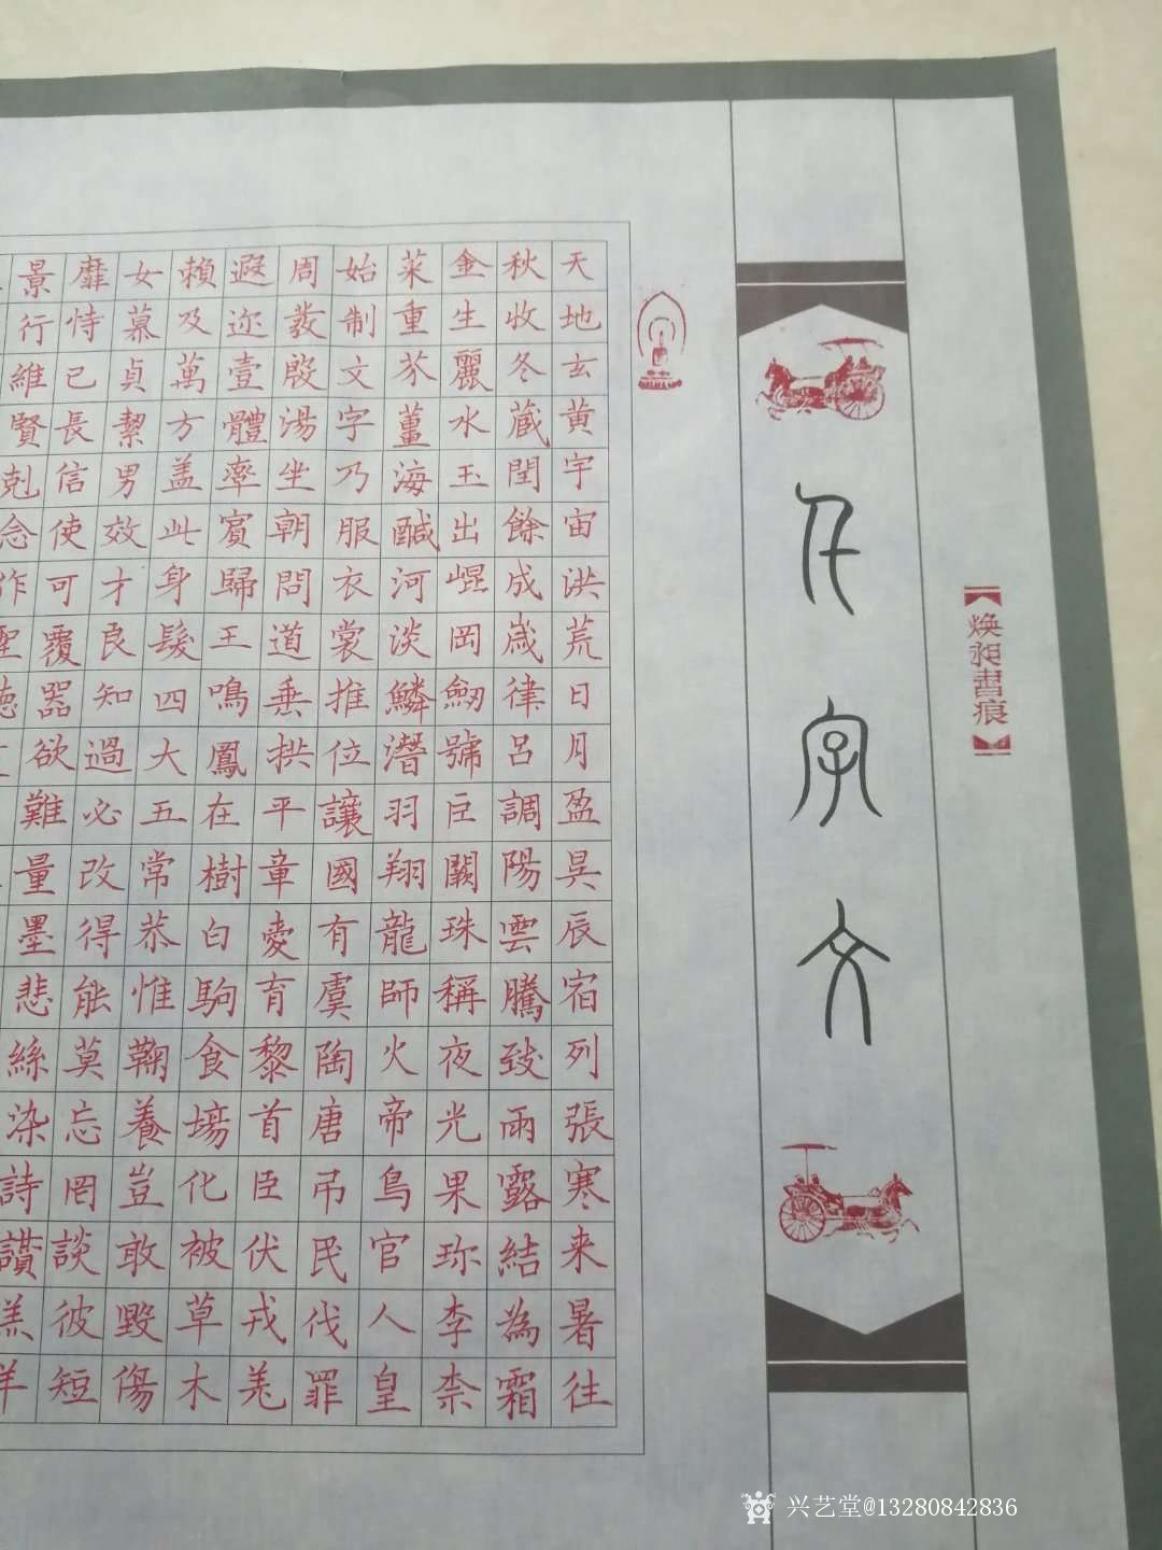 焕昶書痕
千字文
天地玄黄宇宙洪荒日月盈昃辰宿列張寒来暑往
秋收冬蔵閏餘成歲律呂調陽雲騰致雨露結為霜
金生麗水玉出崐岡劒號巨闕珠稱夜光果珎李柰
菜重芥薑海醎河淡鱗潛羽翔龍師火帝鳥官人皇
始制文字乃服衣裳推位讓國有虞陶唐弔民伐罪
周發殷湯坐朝問道垂拱平章愛育黎首臣伏戎羌
遐迩壹體率賓歸王鳴鳳在樹白駒食場化被草木
賴及萬方盖此身髮四大五常恭惟鞠養豈敢毀傷
女慕貞絜男效才良知過必改得能莫忘罔談彼短
靡恃已長信使可覆器欲難量墨悲絲染詩讚羔羊
景行維賢剋念作聖德
兴艺堂@13280842836